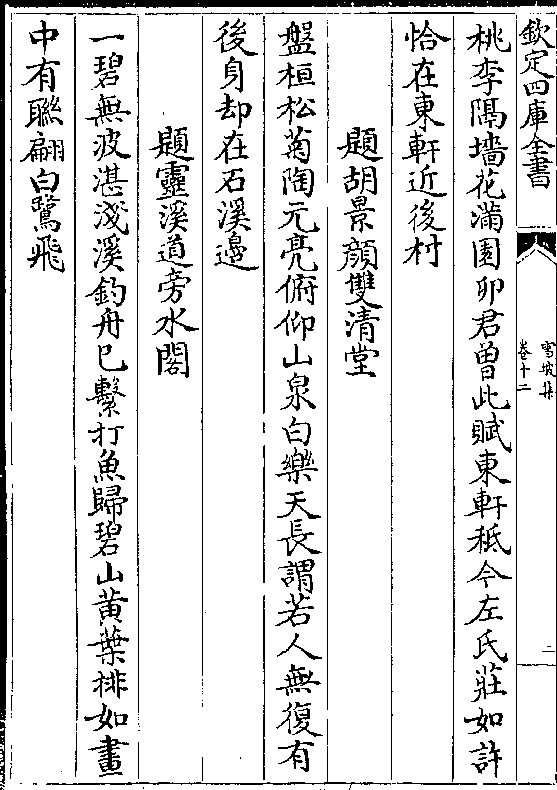 欽定四庫全書
雪坡集
卷十二
二
桃李隔墻花滿園卯君曽此賦東軒秪今左氏莊如許
恰在東軒近後村
題胡景顔雙清堂
盤桓松菊陶元亮俯仰山泉白樂天長謂若人無復有
後身却在石溪邊
題靈溪道旁水閣
一碧無波湛淺溪釣舟已繫打魚歸碧山黄葉排如畫
中有聮翩白鷺飛